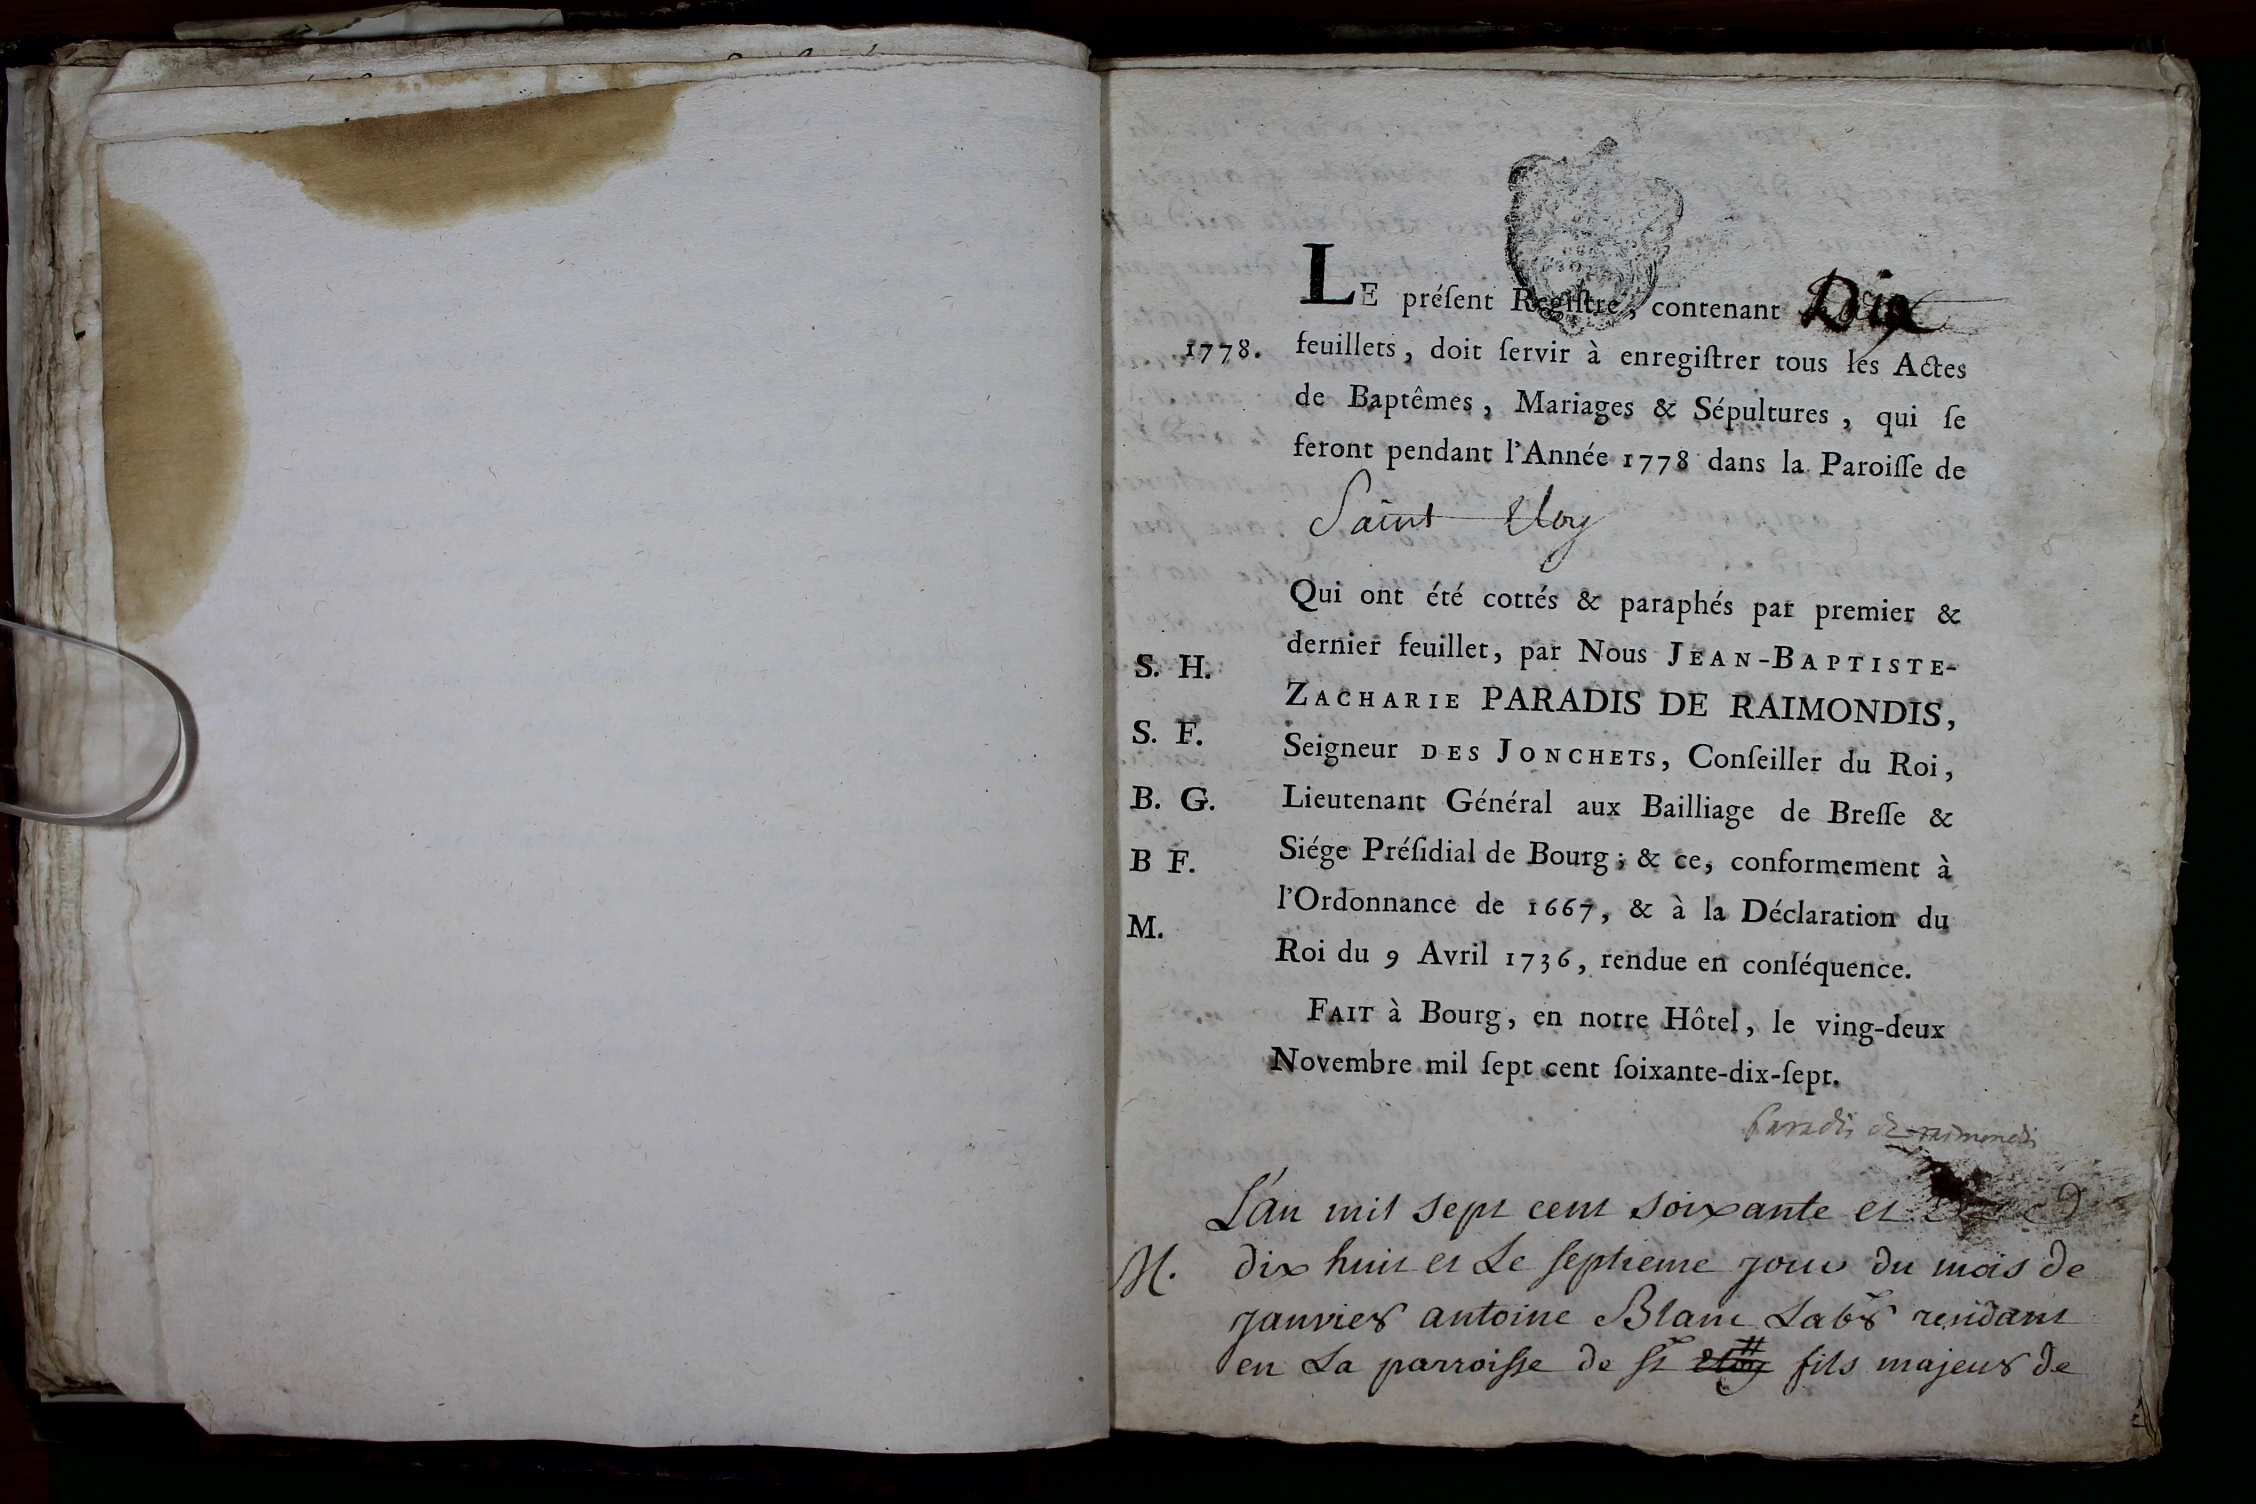 LE préſent Regiſtre, contenant Dix
1778.
feuillets, doit ſervir à enregiſtrer tous les Actes
de Baptêmes, Mariages & Sépultures, qui ſe
feront pendant l'Année 1778 dans la Paroiſſe de
Saint Eloy
Qui ont été cottés & paraphés par premier &
dernier feuillet, par Nous JEAN-BAPTISTE-
S. H.
ZACHARIE PARADIS DE RAIMONDIS,
S. F.
Seigneur DES JONCHETS, Conſeiller du Roi,
B. G.
Lieutenant Général aux Bailliage de Breſſe &
B F.
Siége Préſidial de Bourg; & ce, conformement à
l'Ordonnance de 1667, & à la Déclaration du
M.
Roi du 9 Avril 1736, rendue en conſéquence.
FAIT à Bourg, en notre Hôtel, le ving-deux
Novembre mil ſept cent ſoixante-dix-ſept.
Paradis de raimondis
L'an mil sept cent soixante et
M.
dix huit et Le ſeptieme jour du mois de
janvier antoine Blanc Labr residant
en La parroiſſe de ſt Eloy fils majeur de